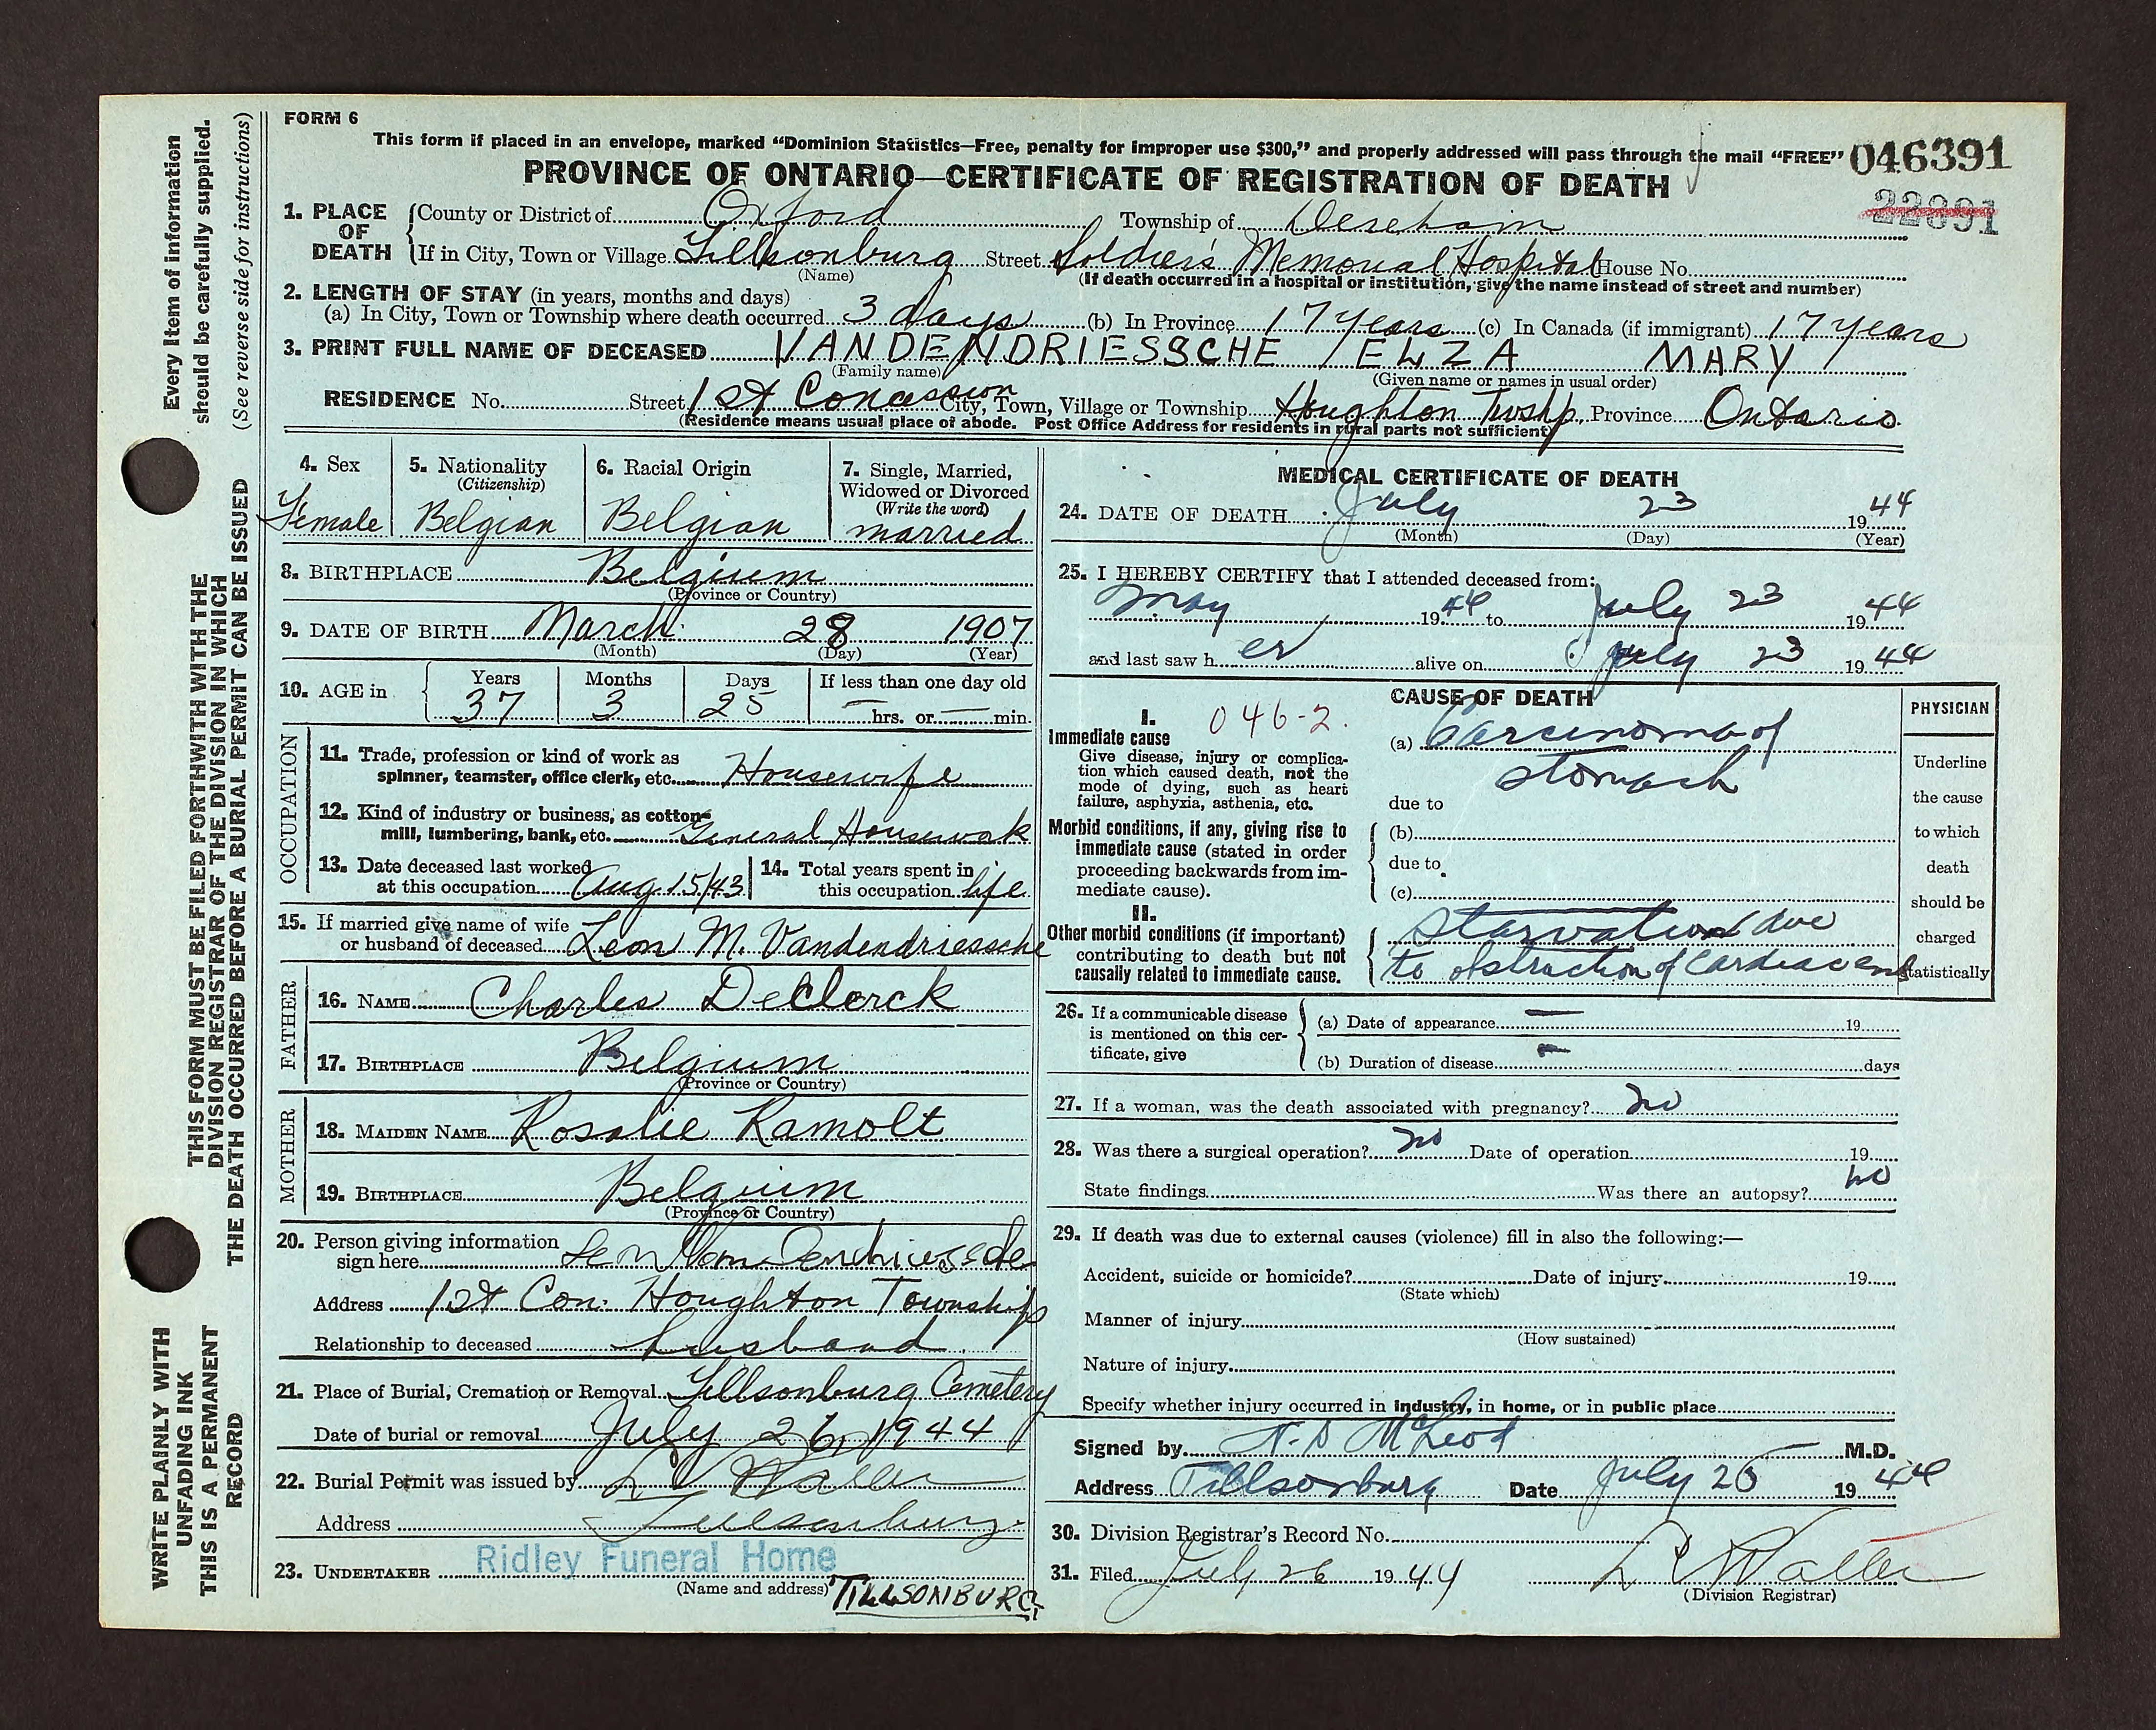 FORM 6
This form if placed in an envelope, marked “Dominion Statistics—Free, penalty for improper use $300,” and properly addressed will pass through the mail “FREE” 046391
PROVINCE OF ONTARIO—CERTIFICATE OF REGISTRATION OF DEATH
22891
1. PLACE OF DEATH
County or District of Oxford Township of Dereham
If in City, Town or Village Tillsonburg Street Soldier's Memorial Hospital House No.
(Name) (If death occurred in a hospital or institution, give the name instead of street and number)
2. LENGTH OF STAY (in years, months and days)
(a) In City, Town or Township where death occurred 3 days (b) In Province 17 years (c) In Canada (if immigrant) 17 years
3. PRINT FULL NAME OF DECEASED VANDENDRIESSCHE / ELZA MARY
(Family name) (Given name or names in usual order)
RESIDENCE No. Street 1st Concession City, Town, Village or Township Houghton Twshp. Province Ontario
(Residence means usual place of abode. Post Office Address for residents in rural parts not sufficient)
4. Sex
Female
5. Nationality
(Citizenship)
Belgian
6. Racial Origin
Belgian
7. Single, Married,
Widowed or Divorced
(Write the word)
married
8. BIRTHPLACE Belgium
(Province or Country)
9. DATE OF BIRTH March 28 1907
(Month) (Day) (Year)
10. AGE in
Years Months Days If less than one day old
37 3 25 — hrs. or — min.
OCCUPATION
11. Trade, profession or kind of work as
spinner, teamster, office clerk, etc. Housewife
12. Kind of industry or business, as cotton-
mill, lumbering, bank, etc. General Housewok
13. Date deceased last worked
at this occupation Aug 15/43
14. Total years spent in
this occupation life
15. If married give name of wife
or husband of deceased Leon M. Vandendriessche
FATHER
16. NAME Charles DeClerck
17. BIRTHPLACE Belgium
(Province or Country)
MOTHER
18. MAIDEN NAME Rosalie Ramolt
19. BIRTHPLACE Belgium
(Province or Country)
20. Person giving information
sign here
Address 1st Con. Houghton Township
Relationship to deceased husband
21. Place of Burial, Cremation or Removal Tillsonburg Cemetery
Date of burial or removal July 26, 1944
22. Burial Permit was issued by
Address Tillsonburg
23. UNDERTAKER Ridley Funeral Home
(Name and address) TILLSONBURG
MEDICAL CERTIFICATE OF DEATH
24. DATE OF DEATH July 23 1944
(Month) (Day) (Year)
25. I HEREBY CERTIFY that I attended deceased from:
May 1944 to July 23 1944
and last saw h er alive on July 23 1944
CAUSE OF DEATH
I. 046-2.
Immediate cause
Give disease, injury or complica-
tion which caused death, not the
mode of dying, such as heart
failure, asphyxia, asthenia, etc.
(a) Carcinoma of
stomach
due to
Morbid conditions, if any, giving rise to
immediate cause (stated in order
proceeding backwards from im-
mediate cause).
(b)
due to
(c)
II.
Other morbid conditions (if important)
contributing to death but not
causally related to immediate cause.
Starvation due
to obstruction of cardiac end
PHYSICIAN
Underline
the cause
to which
death
should be
charged
statistically
26. If a communicable disease
is mentioned on this cer-
tificate, give
(a) Date of appearance — 19
(b) Duration of disease — days
27. If a woman, was the death associated with pregnancy? no
28. Was there a surgical operation? no Date of operation 19
State findings Was there an autopsy? no
29. If death was due to external causes (violence) fill in also the following:—
Accident, suicide or homicide? Date of injury 19
(State which)
Manner of injury
(How sustained)
Nature of injury
Specify whether injury occurred in industry, in home, or in public place
Signed by McLeod M.D.
Address Tillsonburg Date July 25 1944
30. Division Registrar's Record No.
31. Filed July 26 1944
(Division Registrar)
Every item of information
should be carefully supplied.
(See reverse side for instructions)
THIS FORM MUST BE FILED FORTHWITH WITH THE
DIVISION REGISTRAR OF THE DIVISION IN WHICH
THE DEATH OCCURRED BEFORE A BURIAL PERMIT CAN BE ISSUED
WRITE PLAINLY WITH
UNFADING INK
THIS IS A PERMANENT
RECORD